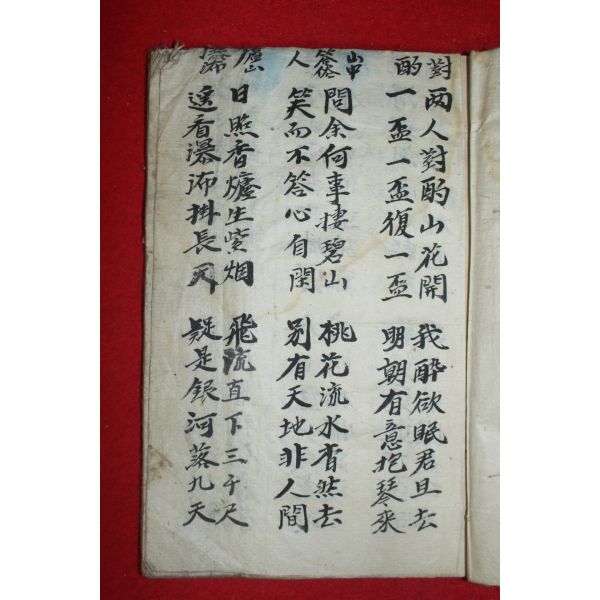 對酌
两人對酌山花開
一盃一盃復一盃
我醉欲眠君且去
明朝有意抱琴來
山中
答俗
人
問余何事棲碧山
笑而不答心自閑
桃花流水杳然去
別有天地非人間
廬山
瀑㳍
日照香爐生紫烟
遙看瀑㳍掛長川
飛流直下三千尺
疑是銀河落九天